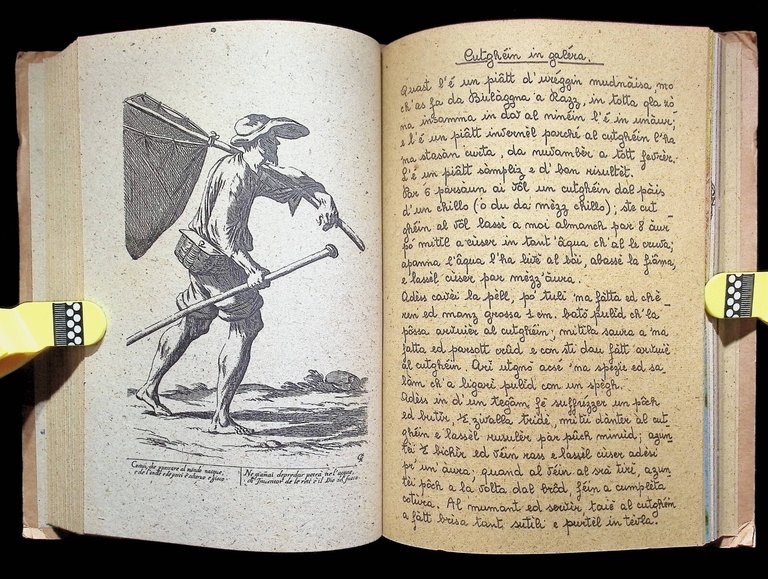 Cutghéin in galéra.
Quast l'é un piàtt d'uréggin mudnàisa, mo
ch'as fa da Bulàggna a Razz, in totta gla zò
na insamma in dov al ninéin l'é in unàur;
e l'é un piàtt invernèl parché al cutghéin l'ha
na stasàn curta, da nuvambèr a tott fevrèr.
L'é un piàtt sàmpliz e d' ban risultèt.
Par 6 parsaun ai vôl un cutghéin dal pàis
d'un chillo (o du da mèzz chillo); ste cut_
ghéin al vôl lassè a moi almanch par 8 àur
pó mittl a cùser in tant' âqua ch'al le cruva;
apanna l'âqua l'ha livè al bòi, abassè la fiâma,
e lassèl cùser par mèzz'àura.
Adèss cavèi la pèll, pó tulì 'na fàtta ed chè_
ren ed manz grossa 1 cm. bató pulîd ch'la
pôssa arivièr al cutghéin; mitîla saura a 'na
fatta ed parsott crûd e con sti dau fàtt arivié
al cutghéin. Ari utgnó acsè 'na spézie ed sa_
làm ch'a ligarî pulîd con un spègh.
Adèss in d'un tegâm, fè suffrézzer un pôch
ed butìr, ½ zivalla tridè, mitì dànter al cut_
ghéin e lassèl rusulèr par pûch minûd; azun_
tèi ½ bichîr ed véin rass e lassèl cùser adèsi
pr' un' àura; quand al véin al srà tirè, azun_
tèi pôch a la volta dal brôd, féin a cumplèta
cotùra. Al mumant ed servìr, taiè al cutghéin
a fàtt brisa tant sutîli e purtèl in tèvla.